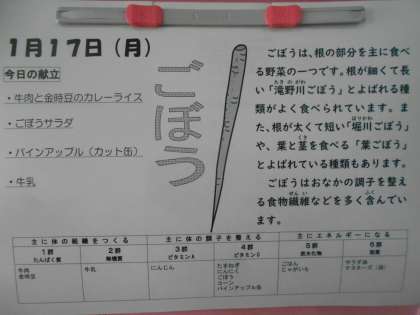 1月17日（月）
今日の献立
・牛肉と金時豆のカレーライス
・ごぼうサラダ
・パインアップル（カット缶）
・牛乳
ごぼう
ごぼうは、根の部分を主に食べ
る野菜の一つです。根が細くて長
い「滝野川ごぼう」とよばれる種
類がよく食べられています。ま
た、根が太くて短い「堀川ごぼう」
や、葉と茎を食べる「葉ごぼう」
とよばれている種類もあります。
ごぼうはおなかの調子を整え
る食物繊維などを多く含んでい
ます。
主に体の組織をつくる 主に体の調子を整える 主にエネルギーになる
1群 2群 3群 4群 5群 6群
たんぱく質 無機質 ビタミンA ビタミンC 炭水化物 脂質
牛肉
金時豆
牛乳
にんじん
たまねぎ
にんにく
ごぼう
コーン
パインアップル缶
ごはん
じゃがいも
サラダ油